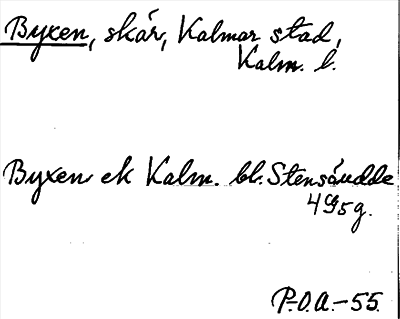 Byxen, skär, Kalmar stad,
Kalm. l.
Byxen ek Kalm. bl. Stensöudde
4G5g.
P.O.A.-55.